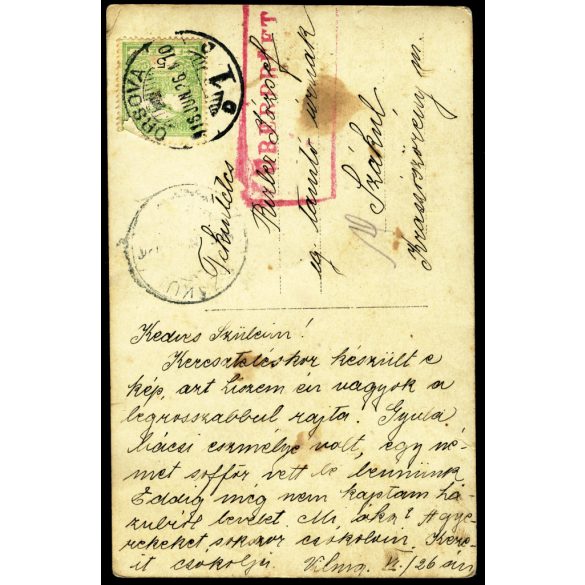 ORSOVA
916 JUN 26
ÜBERPRÜFT
Tekintetes
József
eg. tanító úrnak
Szákul
Krassószörény m.
Kedves Szüleim!
Kereszteléskor készült e
kép, azt hiszem én vagyok a
legrosszabbul rajta. Gyula
bácsi eszméje volt, egy né-
met soffőr vett le bennünk.
Eddig még nem kaptam há-
zulról levelet. Mi, oka? A gye-
rekeket sokszor csókolom Szere-
it csókolja Vilma. VI./26 án